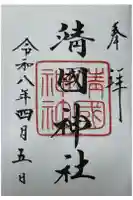 奉拝
靖國神社
令和八年四月五日
靖國
神社